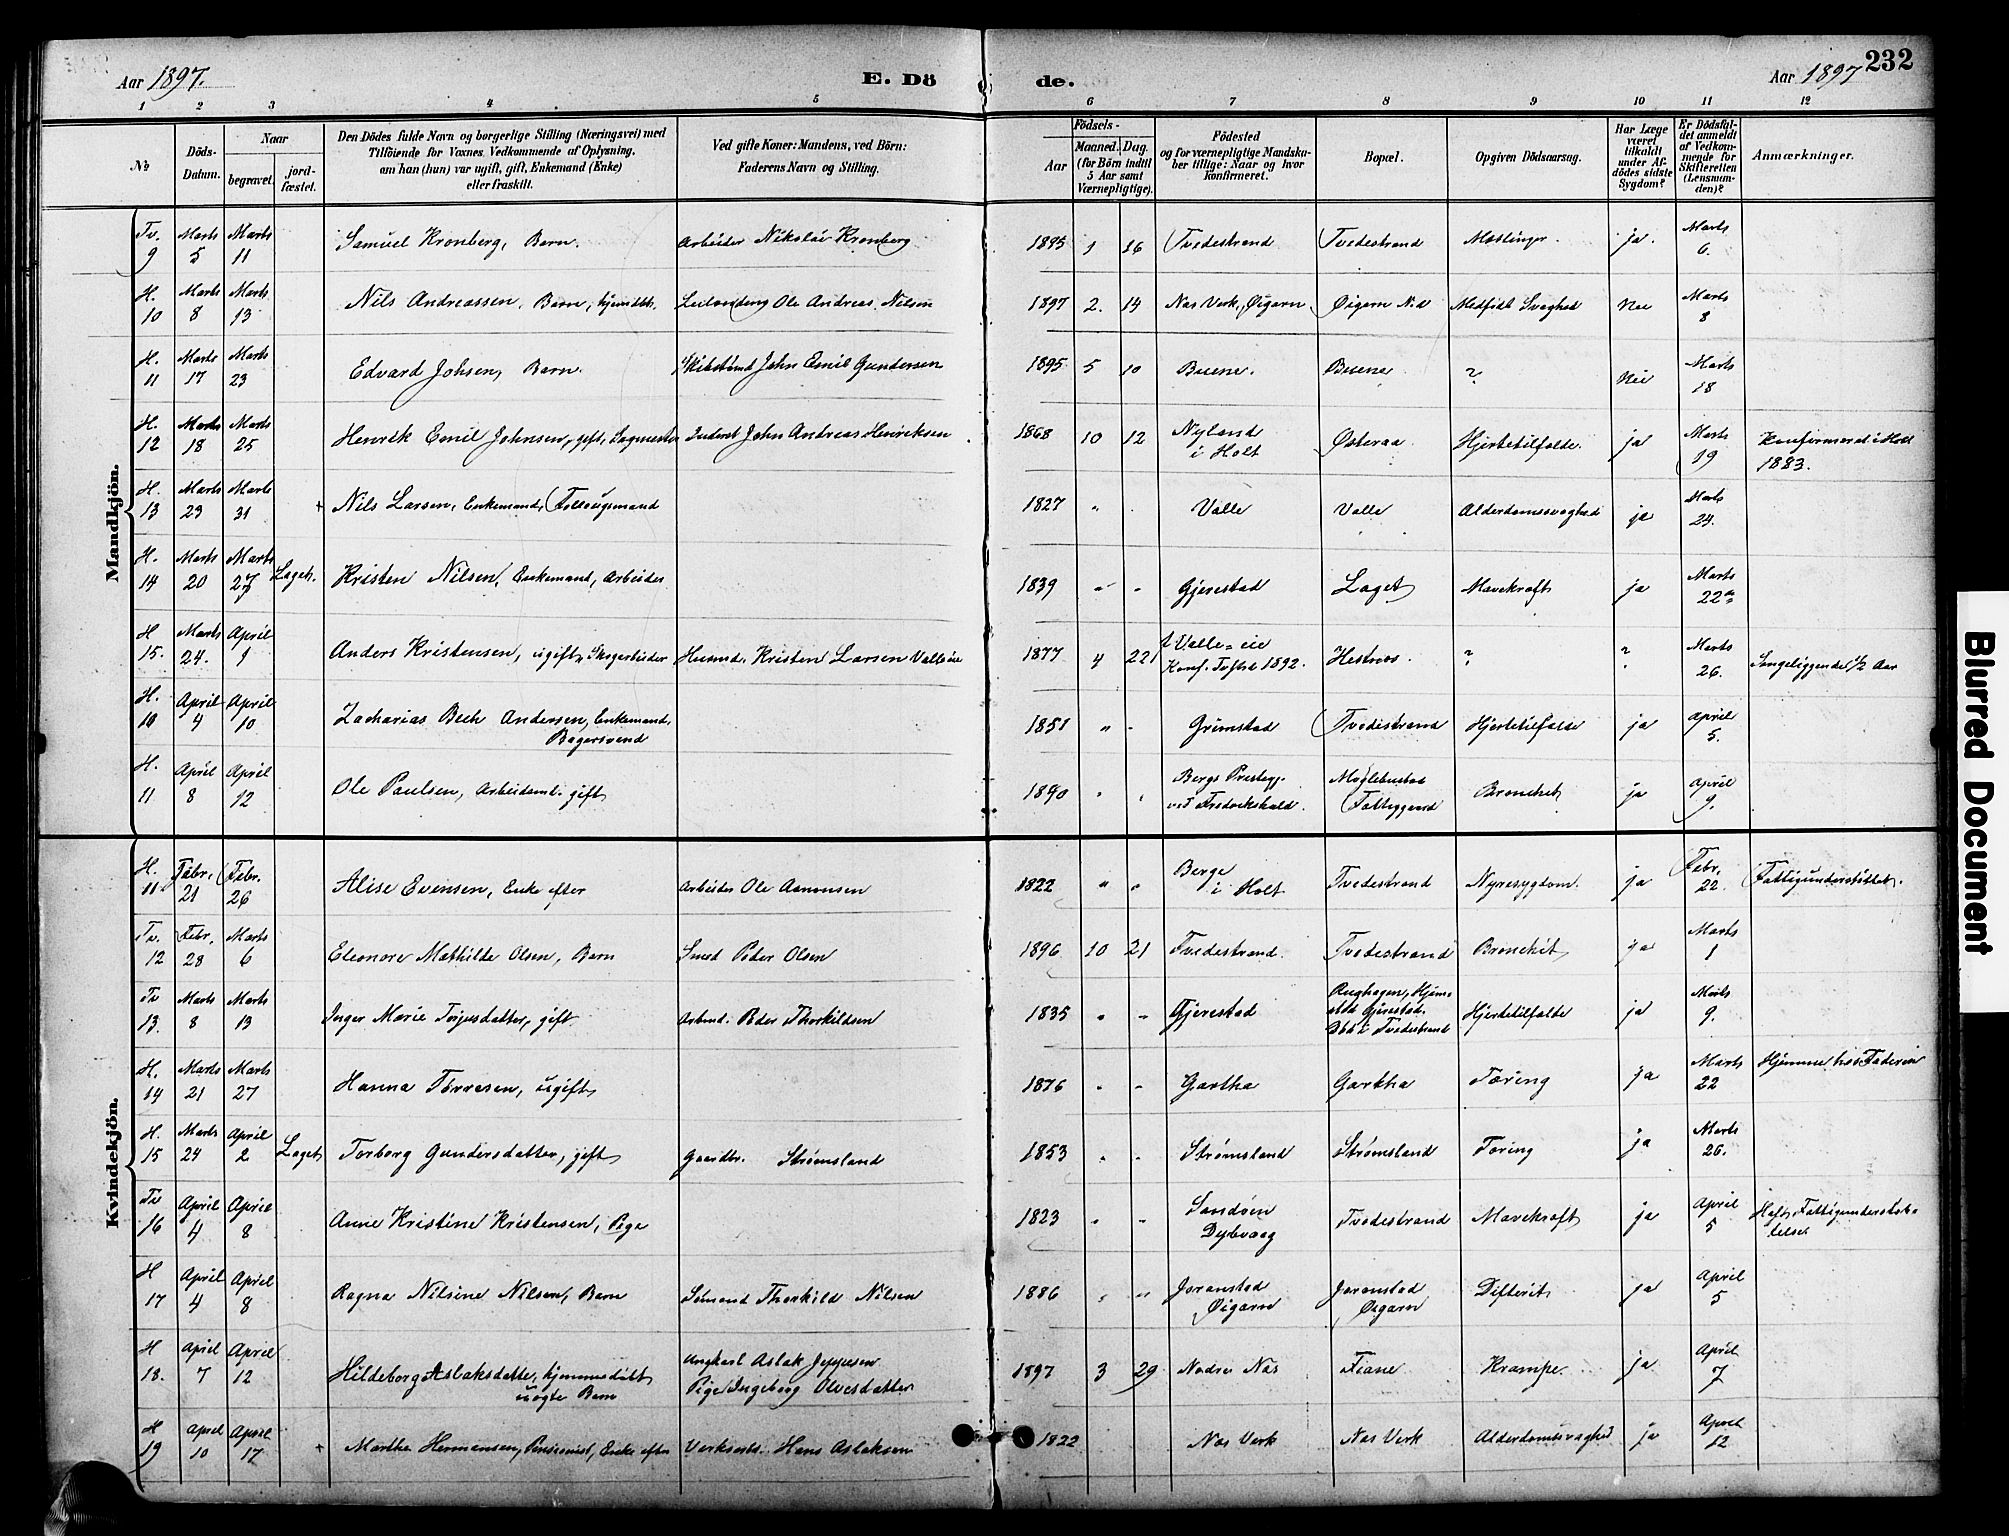 Aar 1897. E. Dö de. Aar 1897 232
1 2 3 4 5 6 7 8 9 10 11 12
No
Döds-Datum.
Naar
begravet.
jord-fæstet.
Den Dödes fulde Navn og borgerlige Stilling (Næringsvei) med
Tilföiende for Voxnes Vedkommende af Oplysning,
om han (hun) var ugift, gift, Enkemand (Enke)
eller fraskilt.
Ved gifte Koner: Mandens, ved Börn:
Faderens Navn og Stilling.
Födsels-
Aar
Maaned. Dag.
(for Börn indtil
5 Aar samt
Værnepligtige).
Födested
og for værnepligtige Mandskaber
tillige: Naar og hvor
konfirmeret.
Bopæl.
Opgiven Dödsaarsag.
Har Læge
været
tilkaldt
under Afdödes
sidste
Sygdom?
Er Dödsfaldet
anmeldt
af Vedkommende
for
Skifteretten
(Lensmanden)?
Anmærkninger.
Mandkjön.
Tv. 9 Marts 5 Marts 11 Samuel Kronberg, Barn. Arbeider Nikolai Kronberg 1895 1 16 Tvedestrand Tvedestrand Mæslinger. ja. Marts 6.
H. 10 Marts 8 Marts 13 Nils Andreassen, Barn, hjemdbt. Leilending Ole Andreas Nilsen 1897 2. 14 Næs Verk, Øigarn Øigarn N.V. Medfødt Svaghed Nei Marts 8
H. 11 Marts 17 Marts 23 Edvard Johsen, Barn. John Emil Gundersen 1895 5 10 Buene. Buene ? Nei Marts 18
H. 12 Marts 18 Marts 25 Henrik Emil Johnsen, gift, Sagmester Inderst John Andreas Henriksen 1868 10 12 Nyland i Holt Østeraa Hjertetilfælde. ja Marts 19 Konfirmeret i Holt 1883.
H. 13 Marts 23 Marts 31 + Nils Larsen, Enkemand, Føllougsmand 1827 " . Valle Valle Alderdomssvaghed ja Marts 24.
H. 14 Marts 20 Marts 27 Laget. Kristen Nilsen, Enkemand, Arbeider 1839 " " Gjerestad Laget Mavekræft ja Marts 22de
H 15. Marts 24. April 1 Anders Kristensen, ugift, Skogarbeider Husmd. Kristen Larsen Valleeie 1877 4 22 Valle-eie Konf. 1892. Hestnæs. ? ? Marts 26. Sengeliggende 1/2 Aar
H. 10 April 4 April 10 Zacharias Bech Andersen, Enkemand, Bagersvend 1851 " " Grimstad Tvedestrand Hjertetilfælde ja April 5.
H. 11 April 8 April 12 Ole Paulsen, Arbeidsml. gift 1890 " " Bergs Prestegj. ved Fredrikshald. Møglebustad Fattiggaard Bronchit ja April 9.
Kvindekjön.
H. 11 Febr. 21 Febr. 26 Alise Evensen, Enke efter Arbeider Ole Aanonsen 1822 " " Berge i Holt Tvedestrand Nyresygdom. ja Febr. 22. Fattigunderstøttet.
Tv. 12 Febr. 28 Marts 6 Eleonore Mathilde Olsen, Barn Smed Peder Olsen 1896 10 21 Tvedestrand. Tvedestrand Bronchit ja Marts 1
Tv 13. Marts 8 Marts 13 Inger Marie Terjesdatter, gift Arbmd. Peder Thorkildsen 1835 " " Gjerestad Hjemsted Gjerestad. i Tvedestrand Hjertetilfælde ja Marts 9.
H. 14 Marts 21 Marts 27 Hanna Terresen, ugift 1876 " " Gartha Gartha Tæring ja Marts 22 Hjemme hos Faderen
H. 15 Marts 24 April 2 Laget Torborg Gundersdatter, gift Gaardbr. Strømsland 1853 " " Strømsland Strømsland Tæring ja Marts 26.
Tv 16 April 4 April 8 Anne Kristine Kristensen, Pige 1823 " " Sandøen Dybvaag Tvedestrand Mavekræft ja April 5 Havt Fattigunderstøttelse
H 17 April 4 April 8 Ragna Nilsine Nilsen, Barn Sømand Thorkild Nilsen 1886 " " Joranstad Øigarn Joranstad Øigarn Difterit ja April 5
H 18. April 7 April 12 Hildeborg Aslaksdatter, hjemmedøbt uægte Barn Ungkarl Aslak Jeppesen Pige Ingeborg Olvesdatter 1897 3 29 Nedre Næs Fiane Krampe. ja April 7
H 19 April 10 April 17 + Marthe Hermansen, Pensionist, Enke efter Verksarb. Hans Aslaksen 1822 Næs Verk Næs Verk Alderdomssvaghed ja April 12
Blurred Document